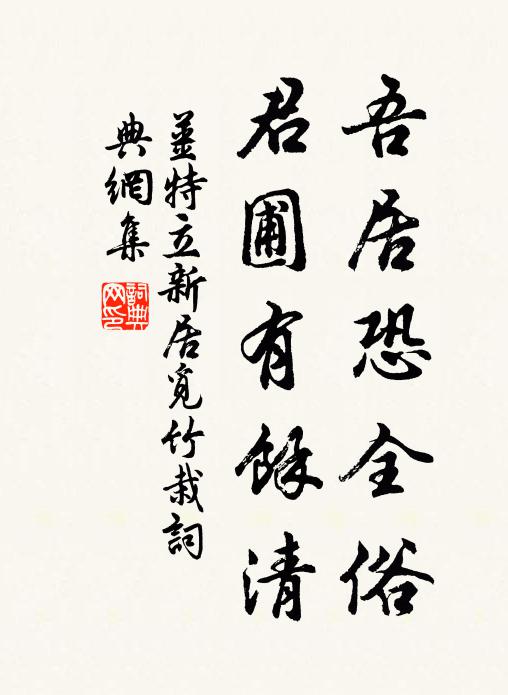 吾居恐全俗
君圃有餘清
姜特立新居覓竹栽詞
典網集
詞典
网印